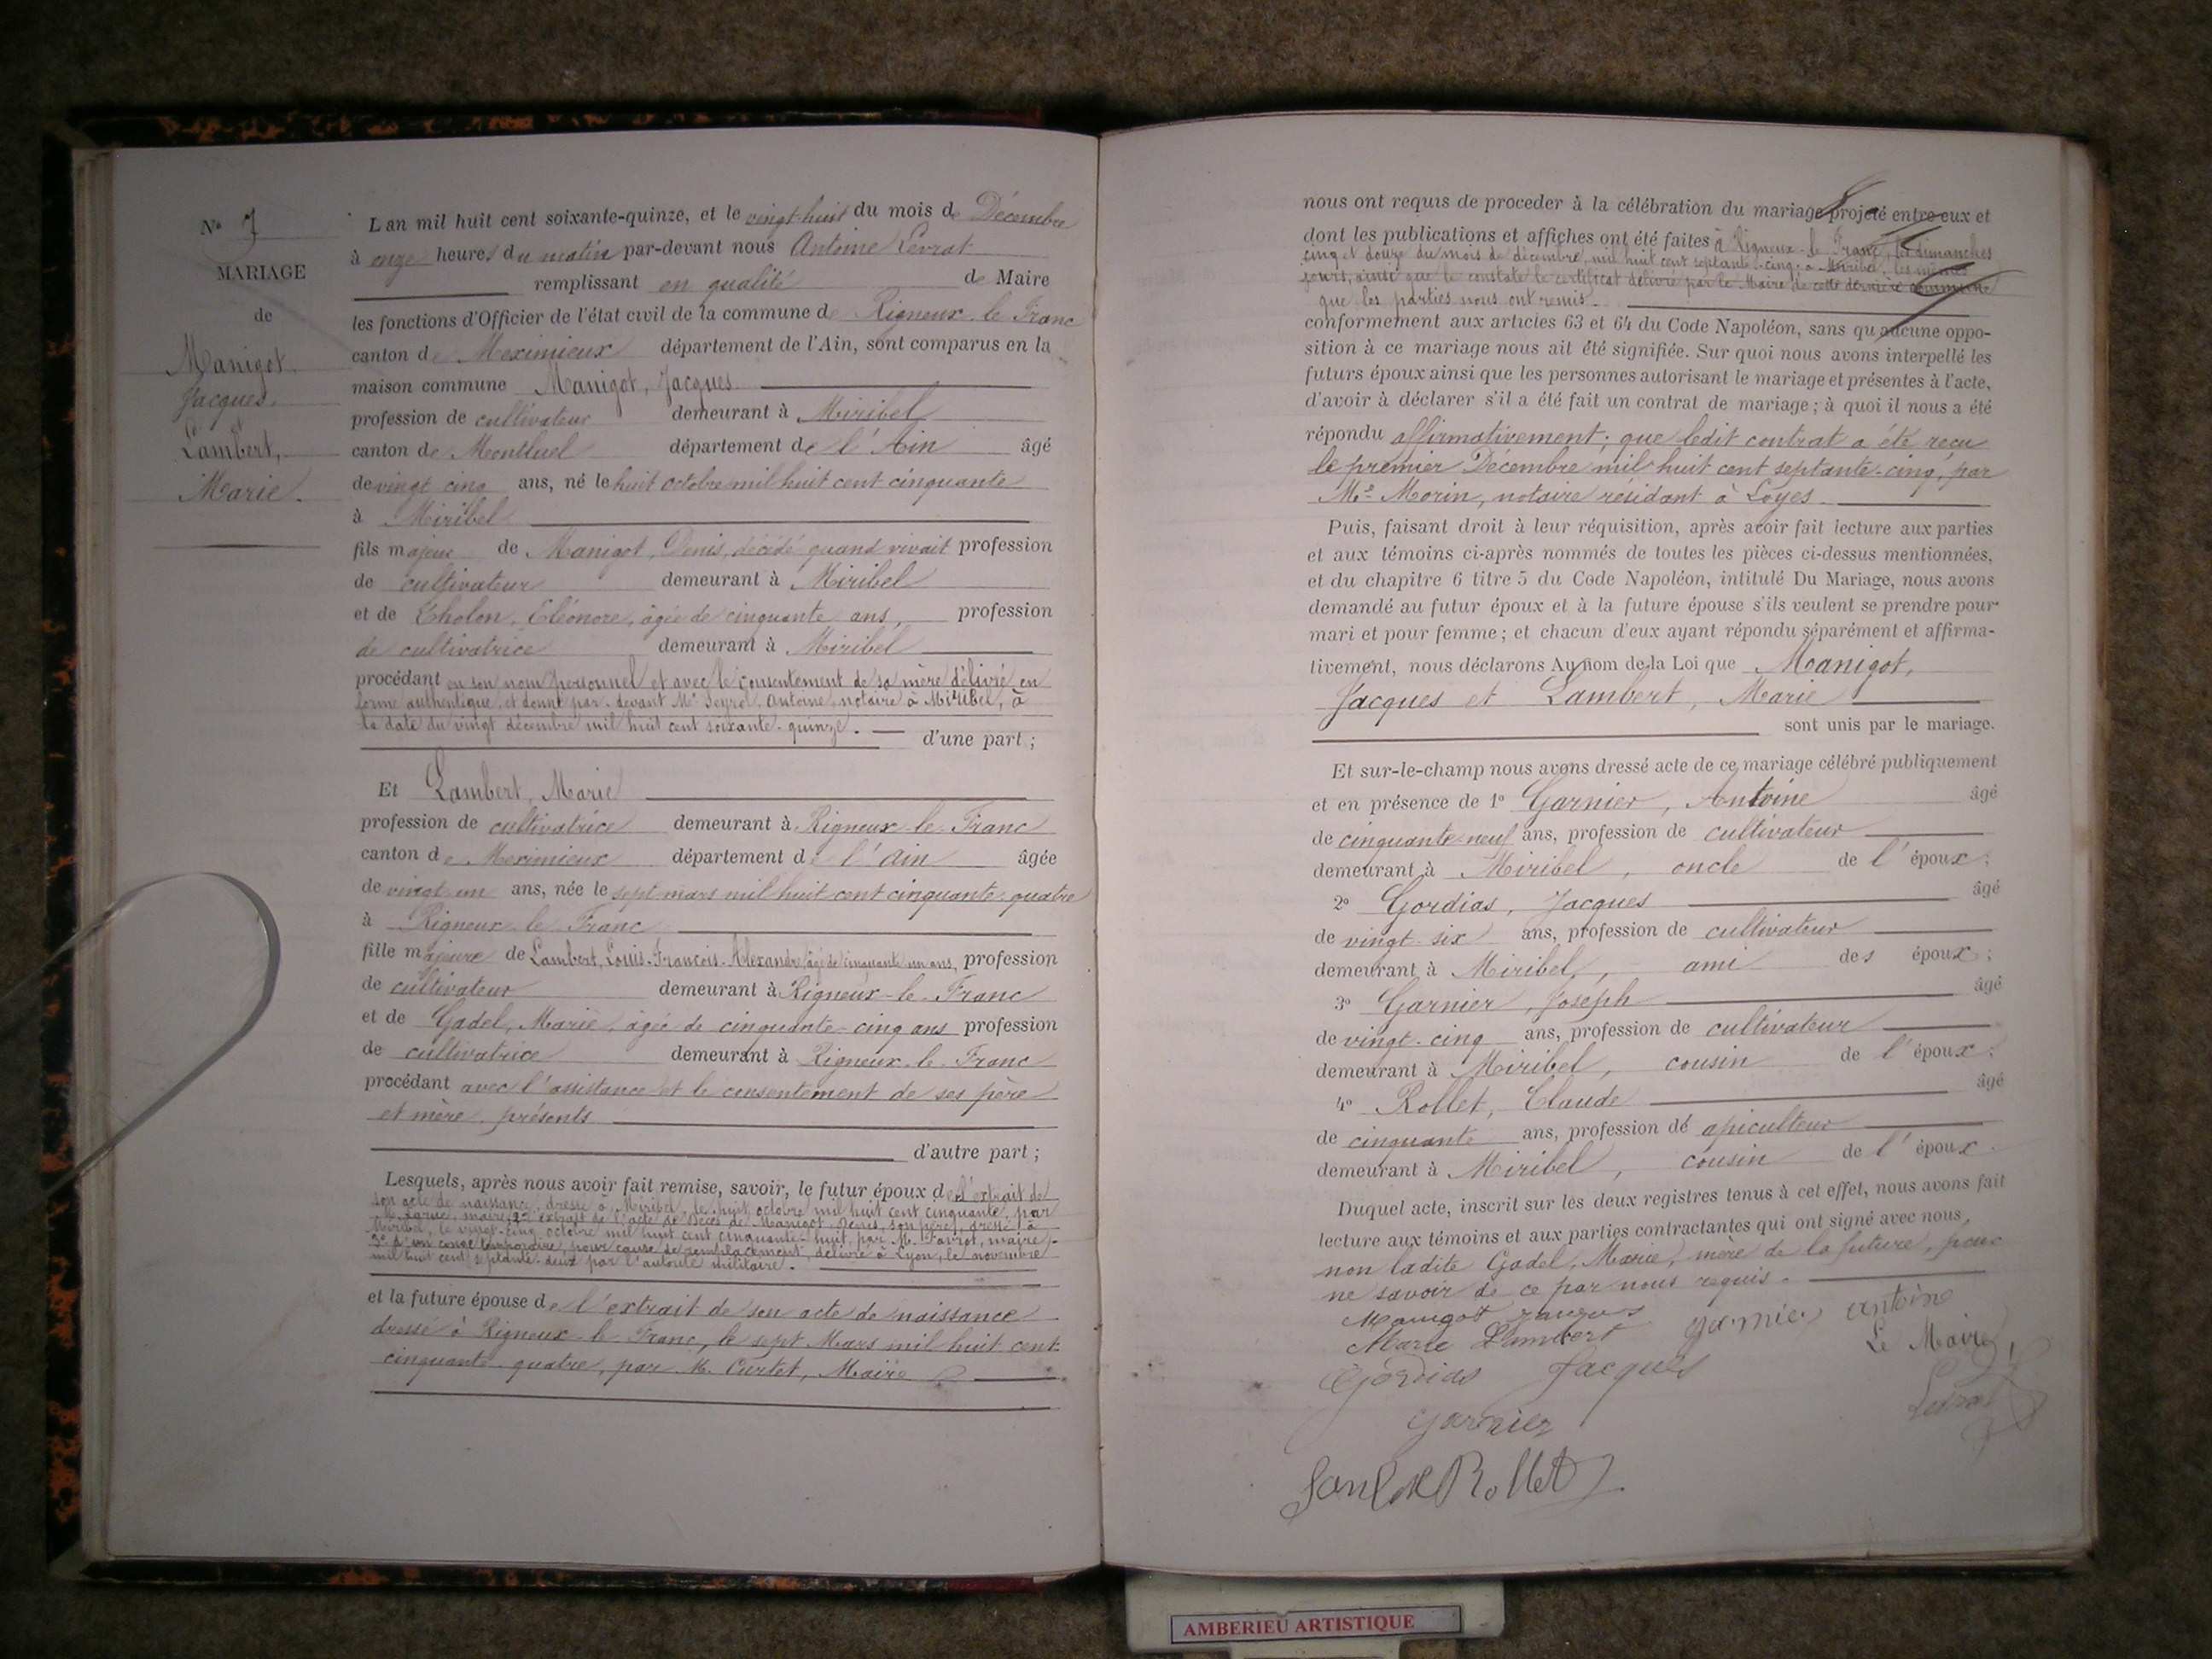 N° 7
MARIAGE
de
Manigot,
Jacques,
et
Lambert,
Marie.
L'an mil huit cent soixante-quinze, et le vingt-huit du mois de Décembre
à onze heures du matin par-devant nous Antoine Levrat
remplissant en qualité de Maire
les fonctions d'Officier de l'état civil de la commune de Rigneux-le-Franc
canton de Meximieux département de l'Ain, sont comparus en la
maison commune Manigot, Jacques
profession de cultivateur demeurant à Miribel
canton de Montluel département de l'Ain âgé
de vingt cinq ans, né le huit octobre mil huit cent cinquante
à Miribel
fils majeur de Manigot, Denis, décédé quand vivait profession
de cultivateur demeurant à Miribel
et de Cholon, Eléonore, âgée de cinquante ans, profession
de cultivatrice demeurant à Miribel
procédant en son nom personnel et avec le consentement de sa mère délivré en
forme authentique, et donné par-devant Me Antoine, notaire à Miribel, à
la date du vingt décembre mil huit cent soixante-quinze.
d'une part ;
Et Lambert, Marie
profession de cultivatrice demeurant à Rigneux-le-Franc
canton de Meximieux département de l'Ain âgée
de vingt-un ans, née le sept mars mil huit cent cinquante-quatre
à Rigneux-le-Franc
fille majeure de Lambert, Louis-François-Alexandre, âgé de cinquante un ans, profession
de cultivateur demeurant à Rigneux-le-Franc
et de Gadel, Marie, âgée de cinquante-cinq ans profession
de cultivatrice demeurant à Rigneux-le-Franc
procédant avec l'assistance et le consentement de ses père
et mère présents
d'autre part ;
Lesquels, après nous avoir fait remise, savoir, le futur époux de l'extrait de
son acte de naissance, dressé à Miribel, le huit octobre mil huit cent cinquante, par
maire, 2° extrait de l'acte de décès de Manigot, Denis, son père, dressé à
Miribel, le vingt-cinq octobre mil huit cent cinquante-huit, par M. Favrot, maire,
3° d'un congé temporaire, pour cause de remplacement, délivré à Lyon, le novembre
mil huit cent septante-deux par l'autorité militaire.
et la future épouse de l'extrait de son acte de naissance
dressé à Rigneux-le-Franc, le sept Mars mil huit cent
cinquante-quatre, par M. Curtet, Maire
nous ont requis de proceder à la célébration du mariage projeté entre eux et
dont les publications et affiches ont été faites à Rigneux-le-Franc, les dimanches
cinq et douze du mois de décembre, mil huit cent septante-cinq, à Miribel, les mêmes
jours, ainsi que le constate le certificat délivré par le Maire de cette dernière commune
que les parties nous ont remis.
conformement aux articles 63 et 64 du Code Napoléon, sans qu'aucune oppo-
sition à ce mariage nous ait été signifiée. Sur quoi nous avons interpellé les
futurs époux ainsi que les personnes autorisant le mariage et présentes à l'acte,
d'avoir à déclarer s'il a été fait un contrat de mariage ; à quoi il nous a été
répondu affirmativement ; que ledit contrat a été reçu
le premier Décembre mil huit cent septante-cinq, par
Me Morin, notaire résidant à Loyes
Puis, faisant droit à leur réquisition, après avoir fait lecture aux parties
et aux témoins ci-après nommés de toutes les pièces ci-dessus mentionnées,
et du chapitre 6 titre 5 du Code Napoléon, intitulé Du Mariage, nous avons
demandé au futur époux et à la future épouse s'ils veulent se prendre pour
mari et pour femme ; et chacun d'eux ayant répondu séparément et affirma-
tivement, nous déclarons Au nom de la Loi que Manigot,
Jacques et Lambert, Marie
sont unis par le mariage.
Et sur-le-champ nous avons dressé acte de ce mariage célébré publiquement
et en présence de 1° Garnier, Antoine âgé
de cinquante neuf ans, profession de cultivateur
demeurant à Miribel, oncle de l'époux ;
2° Gordias, Jacques âgé
de vingt-six ans, profession de cultivateur
demeurant à Miribel, ami des époux ;
3° Garnier, Joseph âgé
de vingt-cinq ans, profession de cultivateur
demeurant à Miribel, cousin de l'époux ;
4° Rollet, Claude âgé
de cinquante ans, profession de apiculteur
demeurant à Miribel, cousin de l'époux.
Duquel acte, inscrit sur les deux registres tenus à cet effet, nous avons fait
lecture aux témoins et aux parties contractantes qui ont signé avec nous,
non ladite Gadel, Marie, mère de la future, pour
ne savoir de ce par nous requis.
Manigot Jacques
Marie Lambert garnier antoine
Le Maire,
Gordias Jacques
Levrat
garnier
Rollet
AMBERIEU ARTISTIQUE